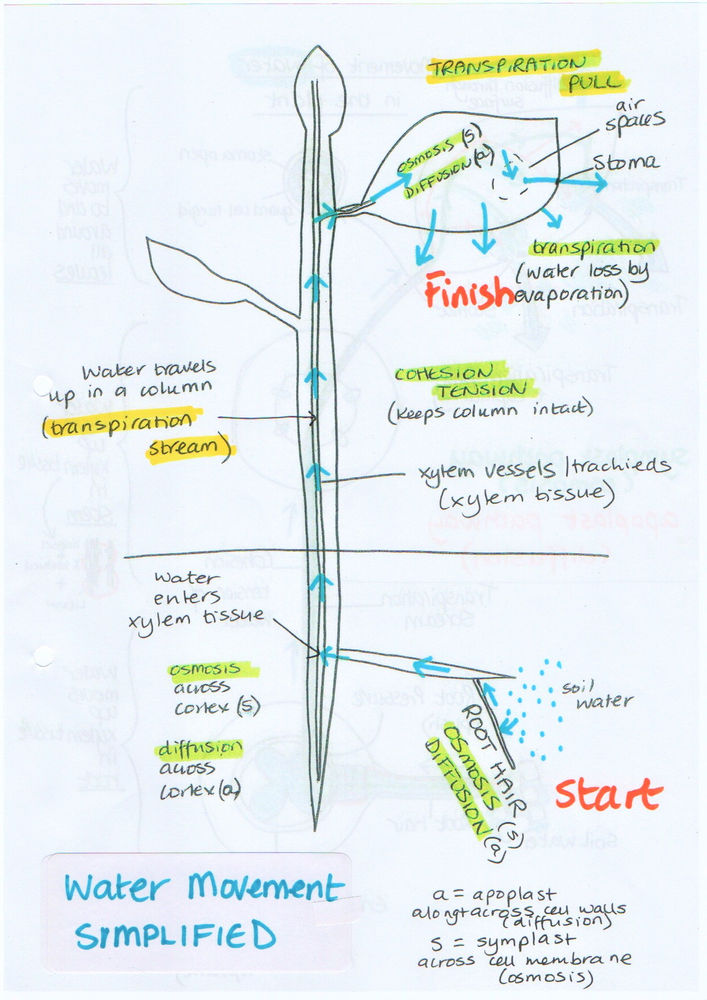 TRANSPIRATION
PULL
air
spaces
Stoma
OSMOSIS (S)
DIFFUSION (a)
transpiration
(water loss by
evaporation)
Finish
Water travels
up in a column
(transpiration
stream)
COHESION
TENSION
(keeps column intact)
xylem vessels/trachieds
(xylem tissue)
Water
enters
xylem tissue
osmosis
across
cortex (s)
diffusion
across
cortex (a)
soil
water
ROOT HAIR
OSMOSIS (S)
DIFFUSION (a)
Start
Water Movement
SIMPLIFIED
a = apoplast
along+across cell walls
(diffusion)
S = symplast
across cell membrane
(osmosis)